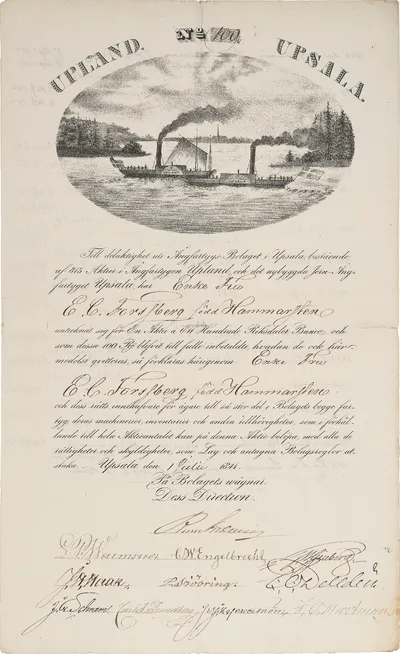 UPLAND. No. 100. UPSALA.
Till delaktighet uti Ångfartygs-Bolaget i Upsala, bestående
af 315 Aktier i Ångfartygen Upland och det nybyggda Jern-Ång-
fartyget Upsala har Enke Fru
E. C. Forssberg född Hammarsten
antecknat sig för En Aktie à Ett Hundrade Riksdaler Banco, och
som dessa 100 Rd blifvit till fullo inbetalde, hvarföre de ock här-
medelst qvitteras, så förklaras härigenom Enke Fru
E. C. Forssberg född Hammarsten
och dess rätts innehafvare för ägare till så stor del i Bolagets begge far-
tyg, deras machinerier, inventarier och andra tillhörigheter, som i förhål-
lande till hela Aktieantalet kan på denna Aktie belöpa, med alla de
rättigheter och skyldigheter, som Lag och antagna Bolagsregler ut-
staka. Upsala den 1 Julii 184
På Bolagets wägnar
Dess Direction.
C. W. Engelbrecht
J. A. Haak P. Sjöbring